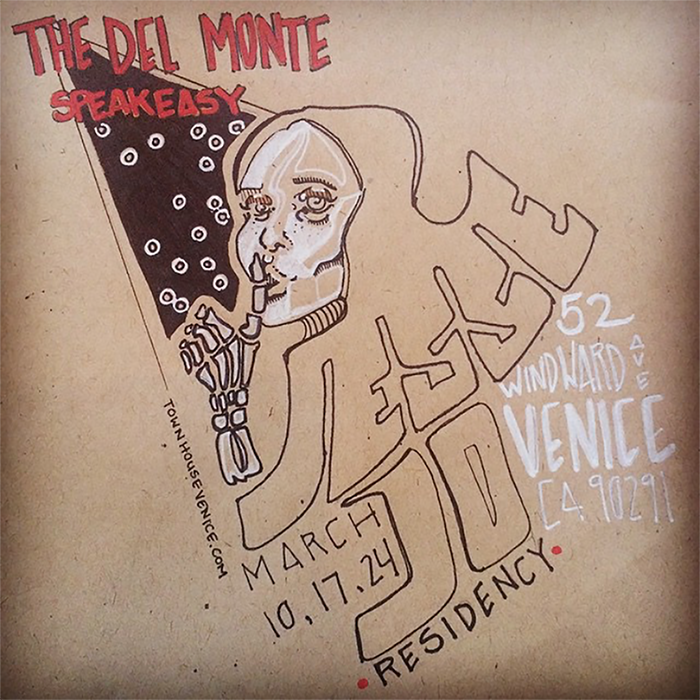 THE DEL MONTE
SPEAKEASY
JESSE
JO
52
WINDWARD AVE
VENICE
CA 90291
TOWNHOUSEVENICE.COM
MARCH
10, 17, 24
• RESIDENCY •